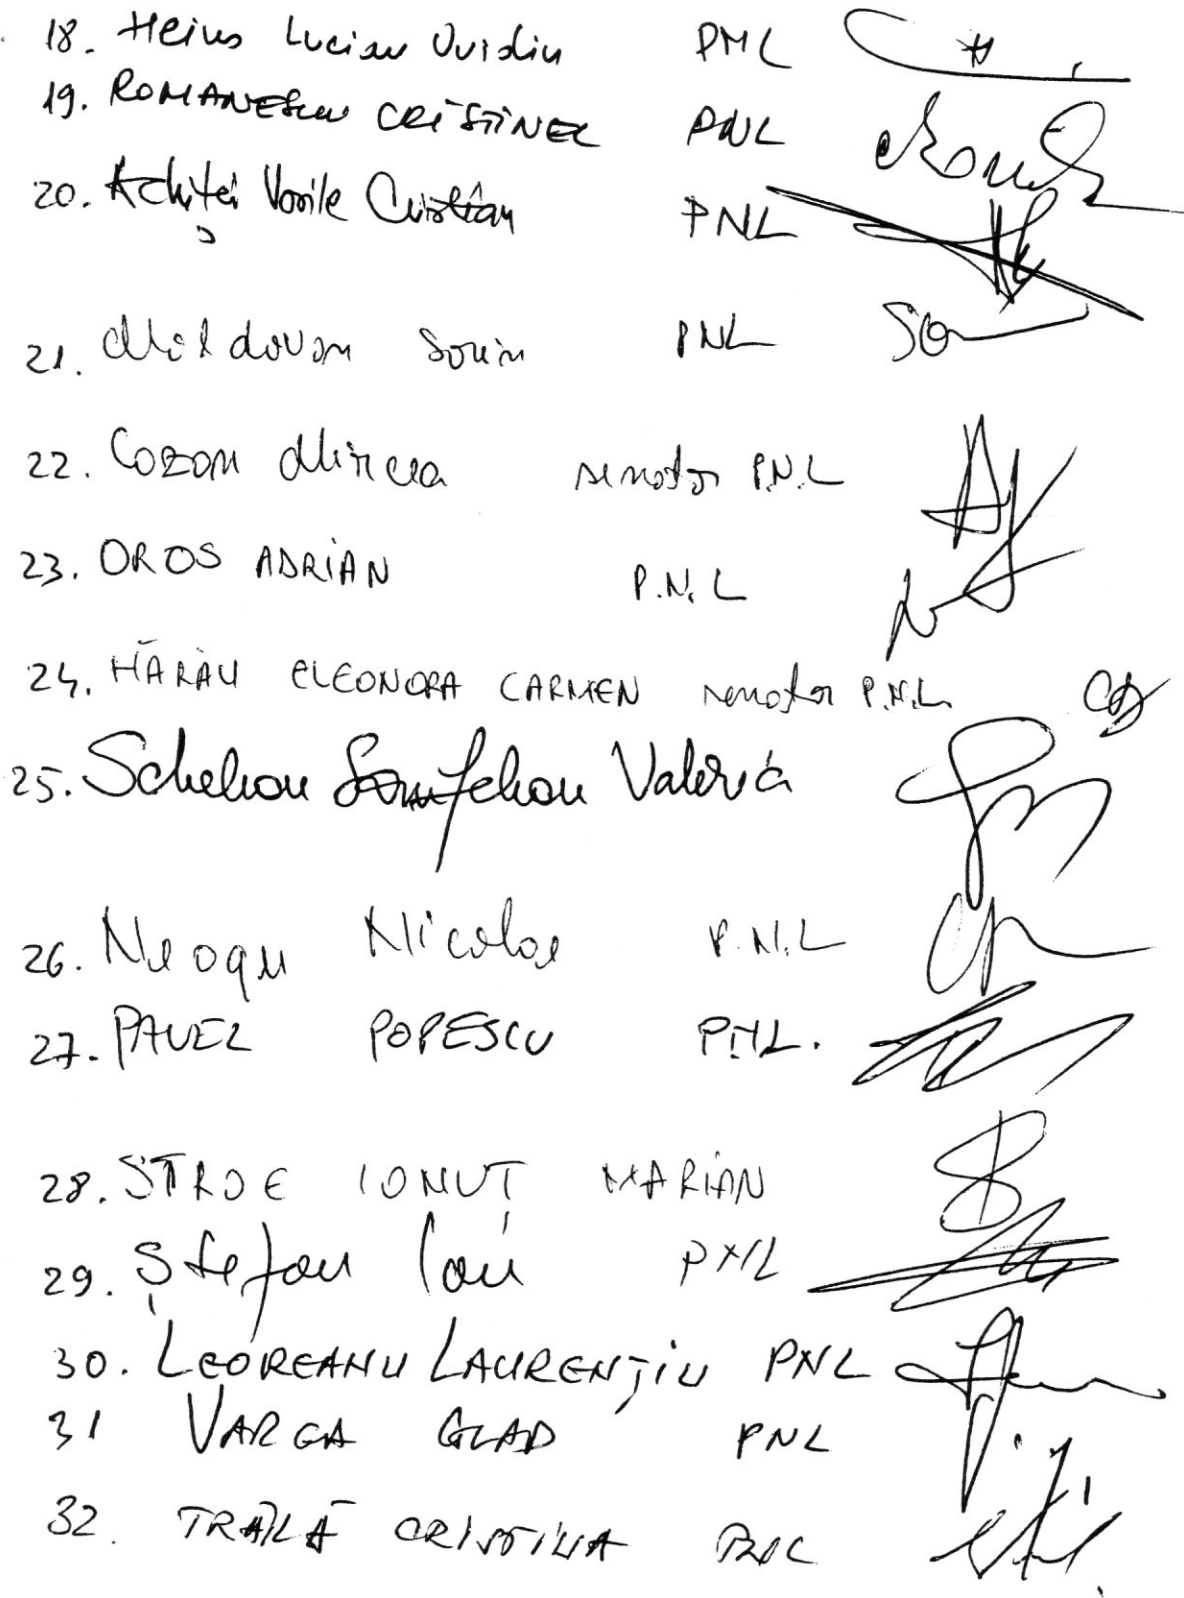 18. Heius Lucian Ovidiu PNL
19. ROMANESCU CRISTINEL PNL
20. Achiței Vasile Cristian PNL
21. Moldovan Sorin PNL
22. Cazan Mircea senator P.N.L
23. OROS ADRIAN P.N.L
24. HĂRĂU ELEONORA CARMEN senator P.N.L.
25. Schelean Valeria
26. Neagu Nicolae P.N.L
27. PAVEL POPESCU PNL.
28. STROE IONUȚ MARIAN
29. Ștefan Ion PNL
30. LEOREANU LAURENȚIU PNL
31 VARGA GLAD PNL
32. TRĂILĂ CRISTINA PNL